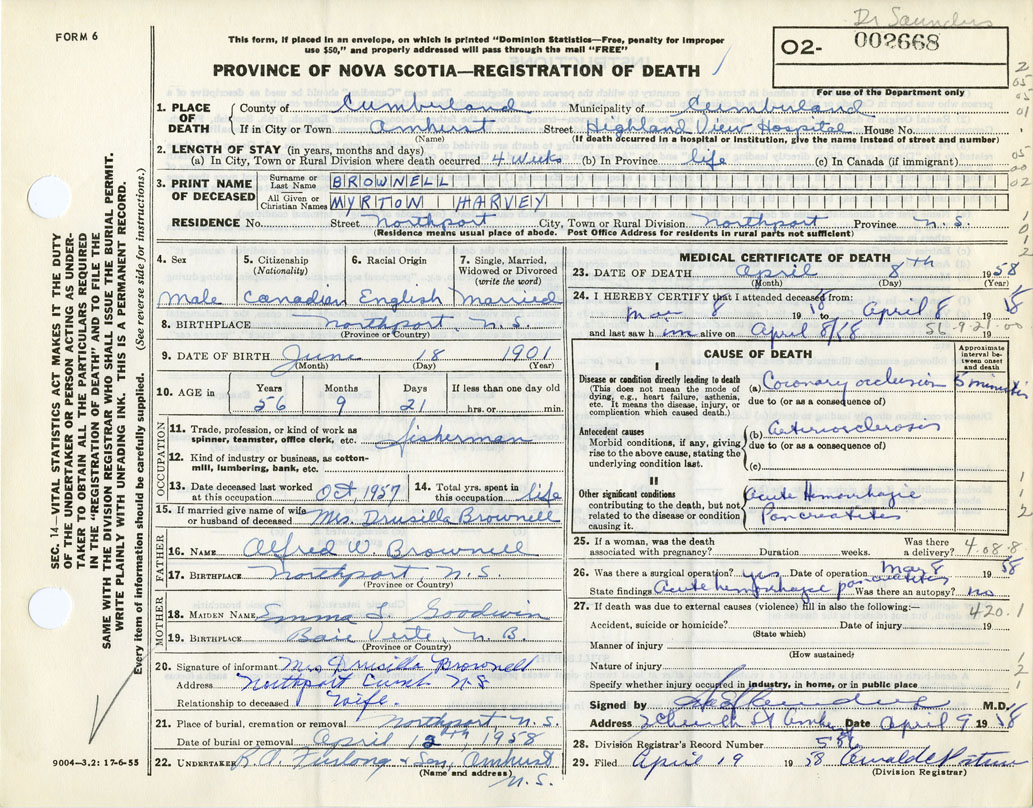 Dr Saunders
FORM 6
This form, if placed in an envelope, on which is printed "Dominion Statistics—Free, penalty for improper
use $50," and properly addressed will pass through the mail "FREE"
O2- 002668
PROVINCE OF NOVA SCOTIA—REGISTRATION OF DEATH
For use of the Department only
1. PLACE OF DEATH County of Cumberland Municipality of Cumberland
If in City or Town Amhurst Street Highland View Hospital House No.
(Name) (If death occurred in hospital or institution, give the name instead of street and number)
2. LENGTH OF STAY (in years, months and days)
(a) In City, Town or Rural Division where death occurred 4 weeks (b) In Province life (c) In Canada (if immigrant)
3. PRINT NAME OF DECEASED Surname or Last Name BROWNELL
All Given or Christian Names MYRTON HARVEY
RESIDENCE No. Street Northport City, Town or Rural Division Northport Province N.S.
(Residence means usual place of abode. Post Office Address for residents in rural parts not sufficient)
4. Sex Male
5. Citizenship (Nationality) Canadian
6. Racial Origin English
7. Single, Married, Widowed or Divorced (write the word) Married
8. BIRTHPLACE Northport, N.S.
(Province or Country)
9. DATE OF BIRTH June 18 1901
(Month) (Day) (Year)
10. AGE in Years 56 Months 9 Days 21 If less than one day old hrs. or min.
OCCUPATION
11. Trade, profession, or kind of work as spinner, teamster, office clerk, etc. fisherman
12. Kind of industry or business, as cotton-mill, lumbering, bank, etc.
13. Date deceased last worked at this occupation Oct 1957
14. Total yrs. spent in this occupation life
15. If married give name of wife or husband of deceased Mrs. Drusilla Brownell
FATHER
16. NAME Alfred W. Brownell
17. BIRTHPLACE Northport N.S.
(Province or Country)
MOTHER
18. MAIDEN NAME Emma L. Goodwin
19. BIRTHPLACE Baie Verte, N.B.
(Province or Country)
20. Signature of informant Mrs Drusilla Brownell
Address Northport Cumb N.S
Relationship to deceased Wife.
21. Place of burial, cremation or removal Northport N.S.
Date of burial or removal April 12th, 1958
22. UNDERTAKER R.A. Furlong & Son, Amhurst
(Name and address) N.S.
MEDICAL CERTIFICATE OF DEATH
23. DATE OF DEATH April 8th 1958
(Month) (Day) (Year)
24. I HEREBY CERTIFY that I attended deceased from:
Mar 8 1958 to April 8 1958
and last saw him alive on April 8/58
56-9-21-00
CAUSE OF DEATH
Approximate interval between onset and death
I
Disease or condition directly leading to death (a) Coronary occlusion 5 minutes
(This does not mean the mode of dying, e.g., heart failure, asthenia, etc. It means the disease, injury, or complication which caused death.)
due to (or as a consequence of)
Antecedent causes (b) arteriosclerosis
Morbid conditions, if any, giving rise to the above cause, stating the underlying condition last.
due to (or as a consequence of)
(c)
II
Other significant conditions contributing to the death, but not related to the disease or condition causing it.
Acute Hemorrhagic
Pancreatitis
25. If a woman, was the death associated with pregnancy? Duration weeks. Was there a delivery?
4.08.8
26. Was there a surgical operation? yes Date of operation Mar 8 1958
State findings Acute hemorrhagic pancreatitis Was there an autopsy? no
27. If death was due to external causes (violence) fill in also the following:—
420.1
Accident, suicide or homicide? Date of injury 19
(State which)
Manner of injury
(How sustained)
Nature of injury
Specify whether injury occurred in industry, in home, or in public place
Signed by M.D.
Address Church St Date April 9 1958
28. Division Registrar's Record Number 556
29. Filed April 19 1958
(Division Registrar)
SEC. 14—VITAL STATISTICS ACT MAKES IT THE DUTY
OF THE UNDERTAKER OR PERSON ACTING AS UNDER-
TAKER TO OBTAIN ALL THE PARTICULARS REQUIRED
IN THE "REGISTRATION OF DEATH" AND TO FILE THE
SAME WITH THE DIVISION REGISTRAR WHO SHALL ISSUE THE BURIAL PERMIT.
WRITE PLAINLY WITH UNFADING INK. THIS IS A PERMANENT RECORD.
Every item of information should be carefully supplied. (See reverse side for instructions.)
9004—3.2: 17-6-55